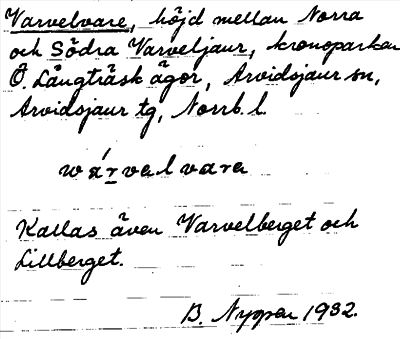 Varvelvare, höjd mellan Norra
och Södra Varveljaur, kronoparken
Ö. Långträsk ägor, Arvidsjaur sn,
Arvidsjaur tg, Norrb. l.
wárvalvarα
Kallas även Varvelberget och
Lillberget.
B. Nygren 1932.